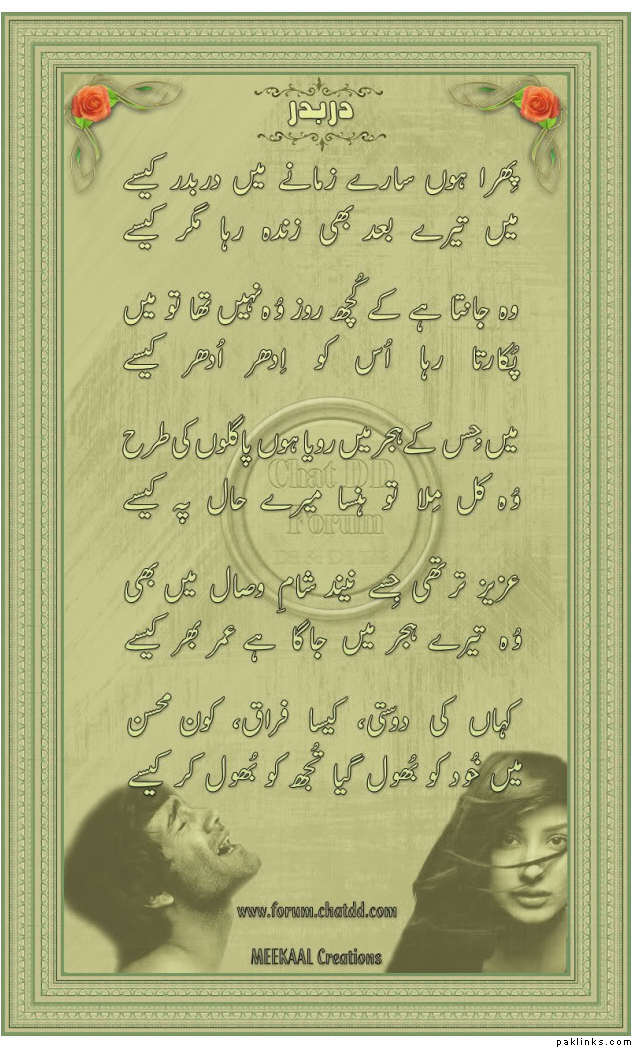 دربدر
پِھرا ہوں سارے زمانے میں دربدر کیسے
میں تیرے بعد بھی زندہ رہا مگر کیسے
وہ جانتا ہے کے کُچھ روز وُہ نہیں تھا تو میں
پُکارتا رہا اُس کو اِدھر اُدھر کیسے
میں جِس کے ہجر میں رویا ہوں پاگلوں کی طرح
وُہ کل مِلا تو ہنسا میرے حال پہ کیسے
Chat DD
Forum
عزیز تر تھی جِسے نیند شامِ وصال میں بھی
وُہ تیرے ہجر میں جاگا ہے عمر بھر کیسے
کہاں کی دوستی، کیسا فراق، کون محسن
میں خُود کو بُھول گیا تُجھ کو بُھول کر کیسے
www.forum.chatdd.com
MEEKAAL Creations
paklinks.com